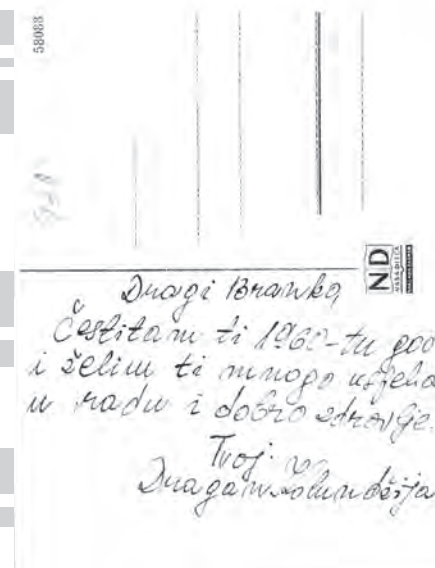 58088
ND
Dragi Branko,
Čestitam ti 1960-tu god
i želim ti mnogo uspjeha
u radu i dobro zdravlje.
Tvoj
Dragan